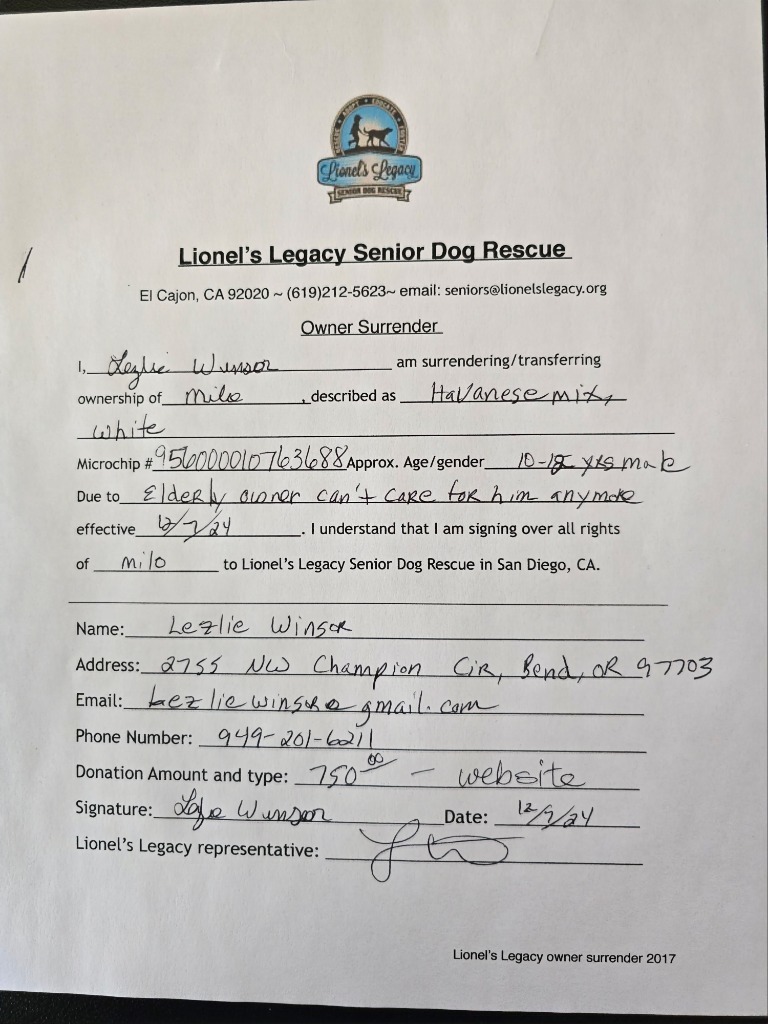 RESCUE • ADOPT • EDUCATE • FOSTER
Lionel's Legacy
SENIOR DOG RESCUE
Lionel's Legacy Senior Dog Rescue
El Cajon, CA 92020 ~ (619)212-5623~ email: seniors@lionelslegacy.org
Owner Surrender
I, Lezlie Winsor am surrendering/transferring
ownership of Milo , described as Havanese mix,
white
Microchip # 956000010763688 Approx. Age/gender 10-12 yrs male
Due to Elderly owner can't care for him anymore
effective 12/7/24 . I understand that I am signing over all rights
of Milo to Lionel's Legacy Senior Dog Rescue in San Diego, CA.
Name: Lezlie Winsor
Address: 2755 NW Champion Cir, Bend, OR 97703
Email: Lezliewinsor@gmail.com
Phone Number: 949-201-6211
Donation Amount and type: 750 00 - website
Signature: Lezlie Winsor Date: 12/7/24
Lionel's Legacy representative:
Lionel's Legacy owner surrender 2017